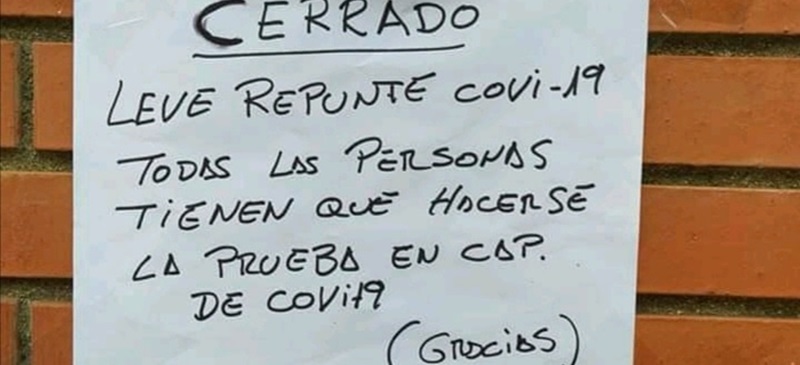 CERRADO
LEVE REPUNTE COVI-19
TODAS LAS PERSONAS
TIENEN QUE HACERSE
LA PRUEBA EN CAP.
DE COVI19
(GRACIAS)